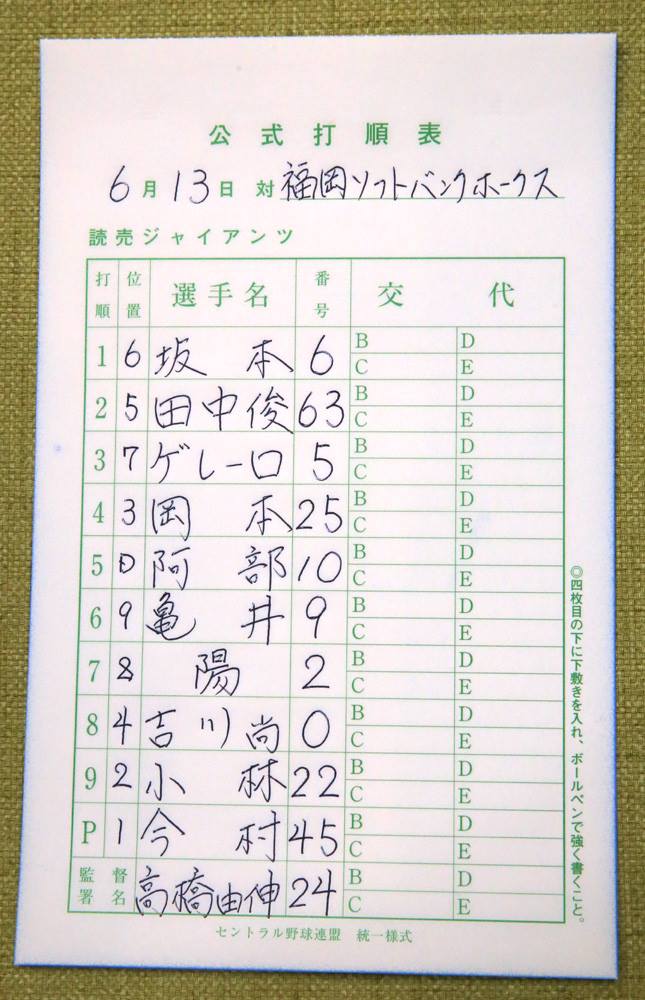 公式打順表
6月13日 対 福岡ソフトバンクホークス
読売ジャイアンツ
打順 位置 選手名 番号 交代
1 6 坂本 6 B D
C E
2 5 田中俊 63 B D
C E
3 7 ゲレーロ 5 B D
C E
4 3 岡本 25 B D
C E
5 D 阿部 10 B D
C E
6 9 亀井 9 B D
C E
7 8 陽 2 B D
C E
8 4 吉川尚 0 B D
C E
9 2 小林 22 B D
C E
P 1 今村 45 B D
C E
監督署名 高橋由伸 24 B D
C E
セントラル野球連盟 統一様式
◎四枚目の下に下敷きを入れ、ボールペンで強く書くこと。